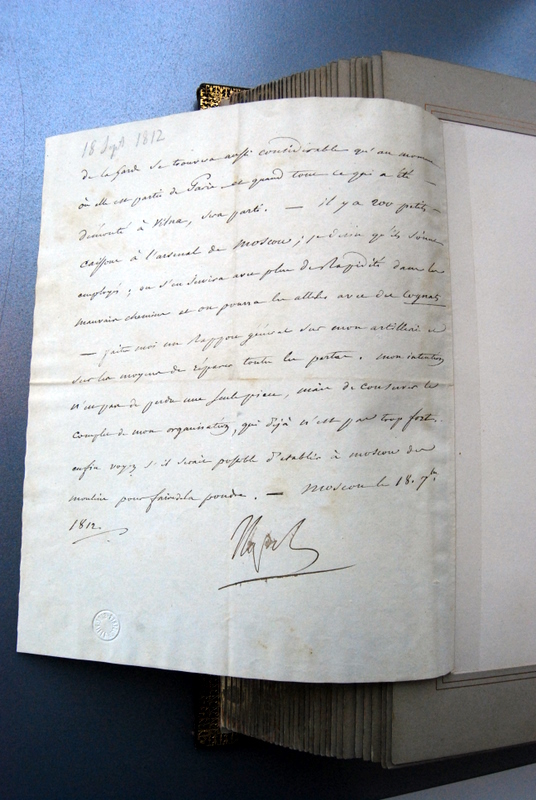 18 Sept 1812
de la garde se trouvera aussi considérable qu'au moment
où elle est partie de Paris et quand tout ce qui a été
démonté à Vilna, sera parti. — il y a 200 petits
caissons à l'arsenal de Moscou; je désire qu'ils soient
employés; on s'en servira avec plus de Rapidité dans les
mauvais chemins et on pourra les atteler avec des cognats
— faites moi un Rapport général sur mon artillerie et
sur les moyens de réparer toutes les pertes. mon intention
n'est pas de perdre une seule pièce, mais de conserver le
complet de mon organisation, qui déjà n'est pas trop fort.
enfin voyez s'il serait possible d'établir à Moscou des
moulins pour faire de la poudre. — Moscou le 18. 7bre
1812.